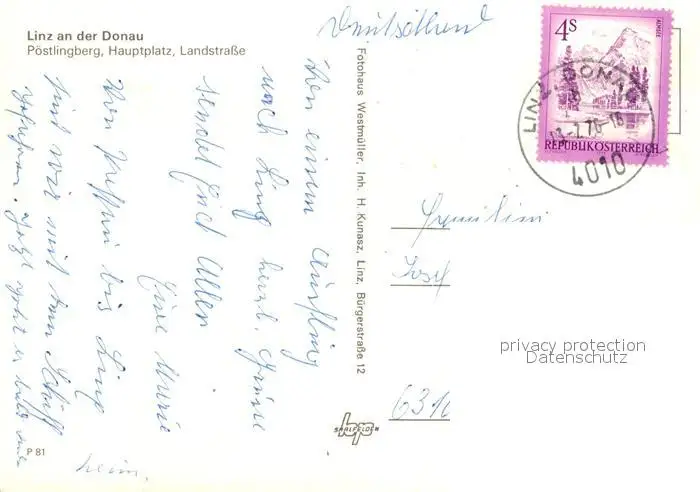 Linz an der Donau
Pöstlingberg, Hauptplatz, Landstraße
Von einem Ausflug
nach Linz herzl. Grüße
sendet Euch Allen
Eure
Von bis Linz
sind wir mit dem Schiff
gefahren. Jetzt geht es bald
heim.
P 81
Fotohaus Westmüller, Inh. H. Kunasz, Linz, Bürgerstraße 12
SAALFELDEN
4S
ALMSEE
REPUBLIK ÖSTERREICH
LINZ, DONAU
4010
Familie
Josef
631
privacy protection
Datenschutz